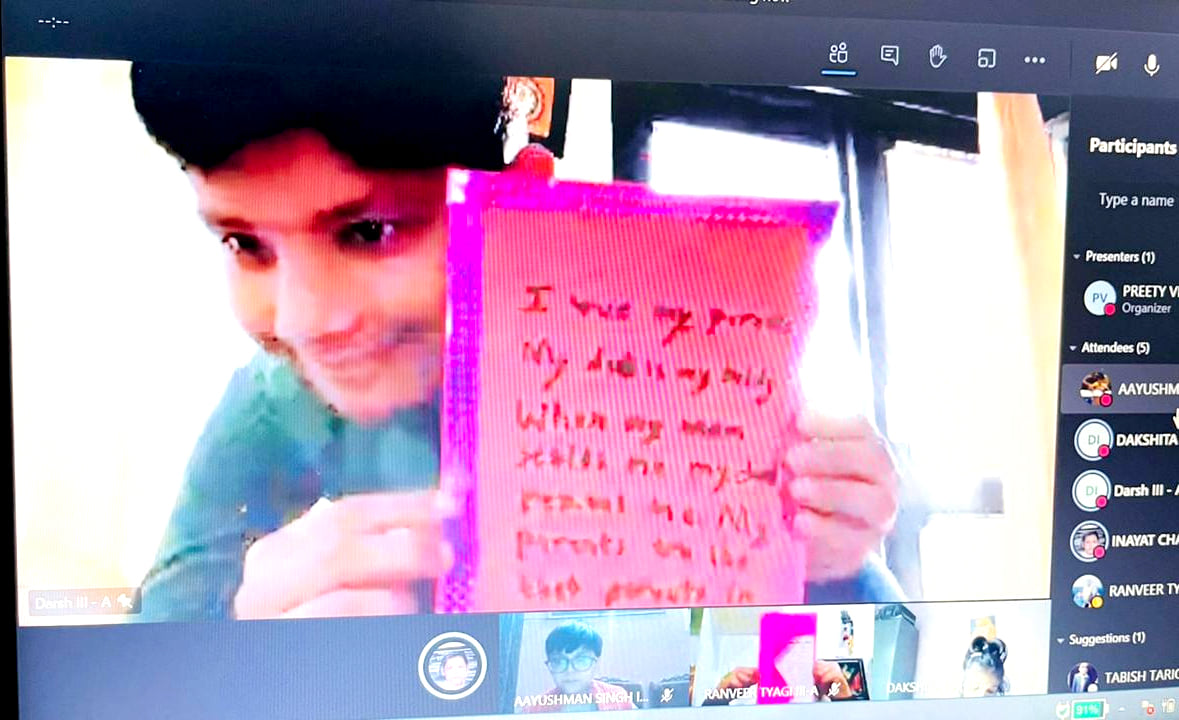 --:--
Participants
Type a name
Presenters (1)
PV
PREETY
Organizer
Attendees (5)
AAYUSHM
DI DAKSHITA
DI Darsh III - A
INAYAT CHA
RANVEER TY
Suggestions (1)
TABISH TARIQ
I my
My dad is my
When my mom
me my
me My
parents
best parents in
Darsh III - A
AAYUSHMAN SINGH I...
RANVEER TYAGI III-A
DAKS
91%